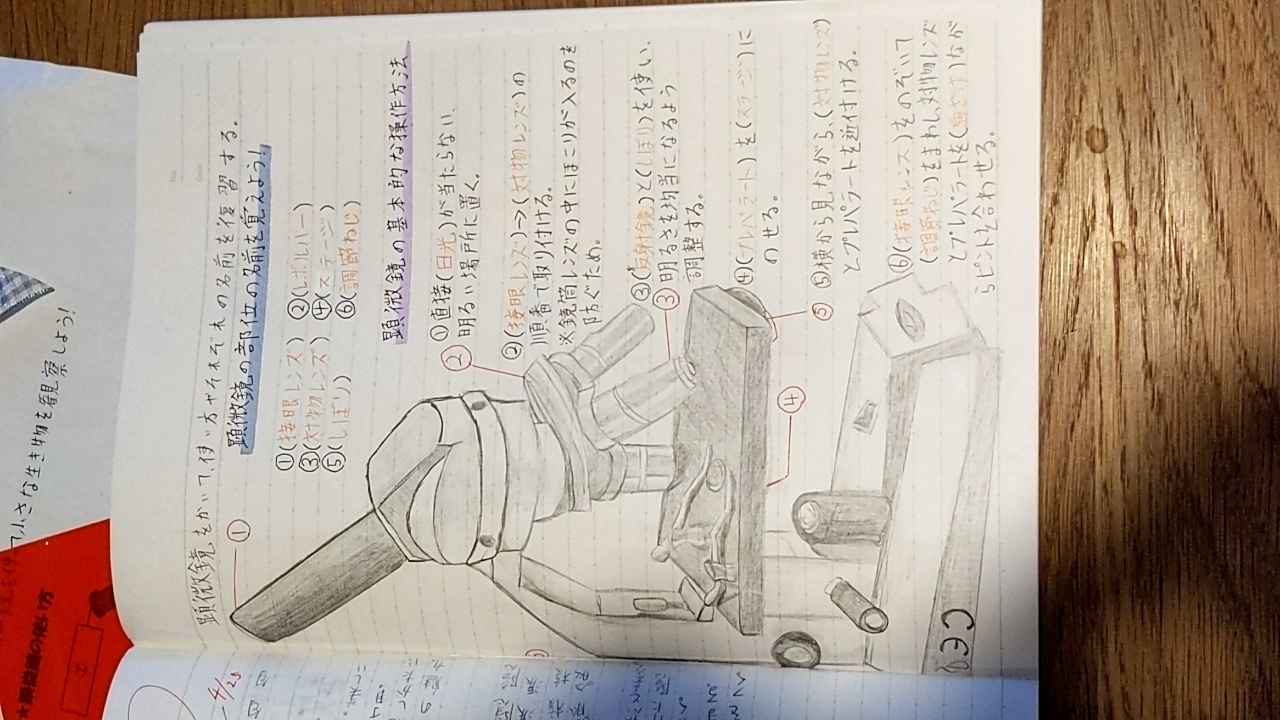 顕微鏡をかいて、使い方やそれぞれの名前を復習する。
顕微鏡の部位の名前を覚えよう!
①(接眼レンズ) ②(レボルバー)
③(対物レンズ) ④(ステージ)
⑤(しぼり) ⑥(調節ねじ)
顕微鏡の基本的な操作方法
①直接(日光)が当たらない
明るい場所に置く。
②(接眼レンズ)→(対物レンズ)の
順番で取り付ける。
※鏡筒レンズの中にほこりが入るのを
防ぐため。
③(反射鏡)と(しぼり)を使い、
明るさを均当になるよう
調整する。
④(プレパラート)を(ステージ)に
のせる。
⑤横から見ながら、(対物レンズ)
とプレパラートを近付ける。
⑥(接眼レンズ)をのぞいて
(調節ねじ)をまわし対物レンズ
とプレパラートを()なが
らピントを合わせる。
①
②
③
④
⑤
CEO
て小さな生き物を観察しよう!
★顕微鏡の使い方
①
4/25